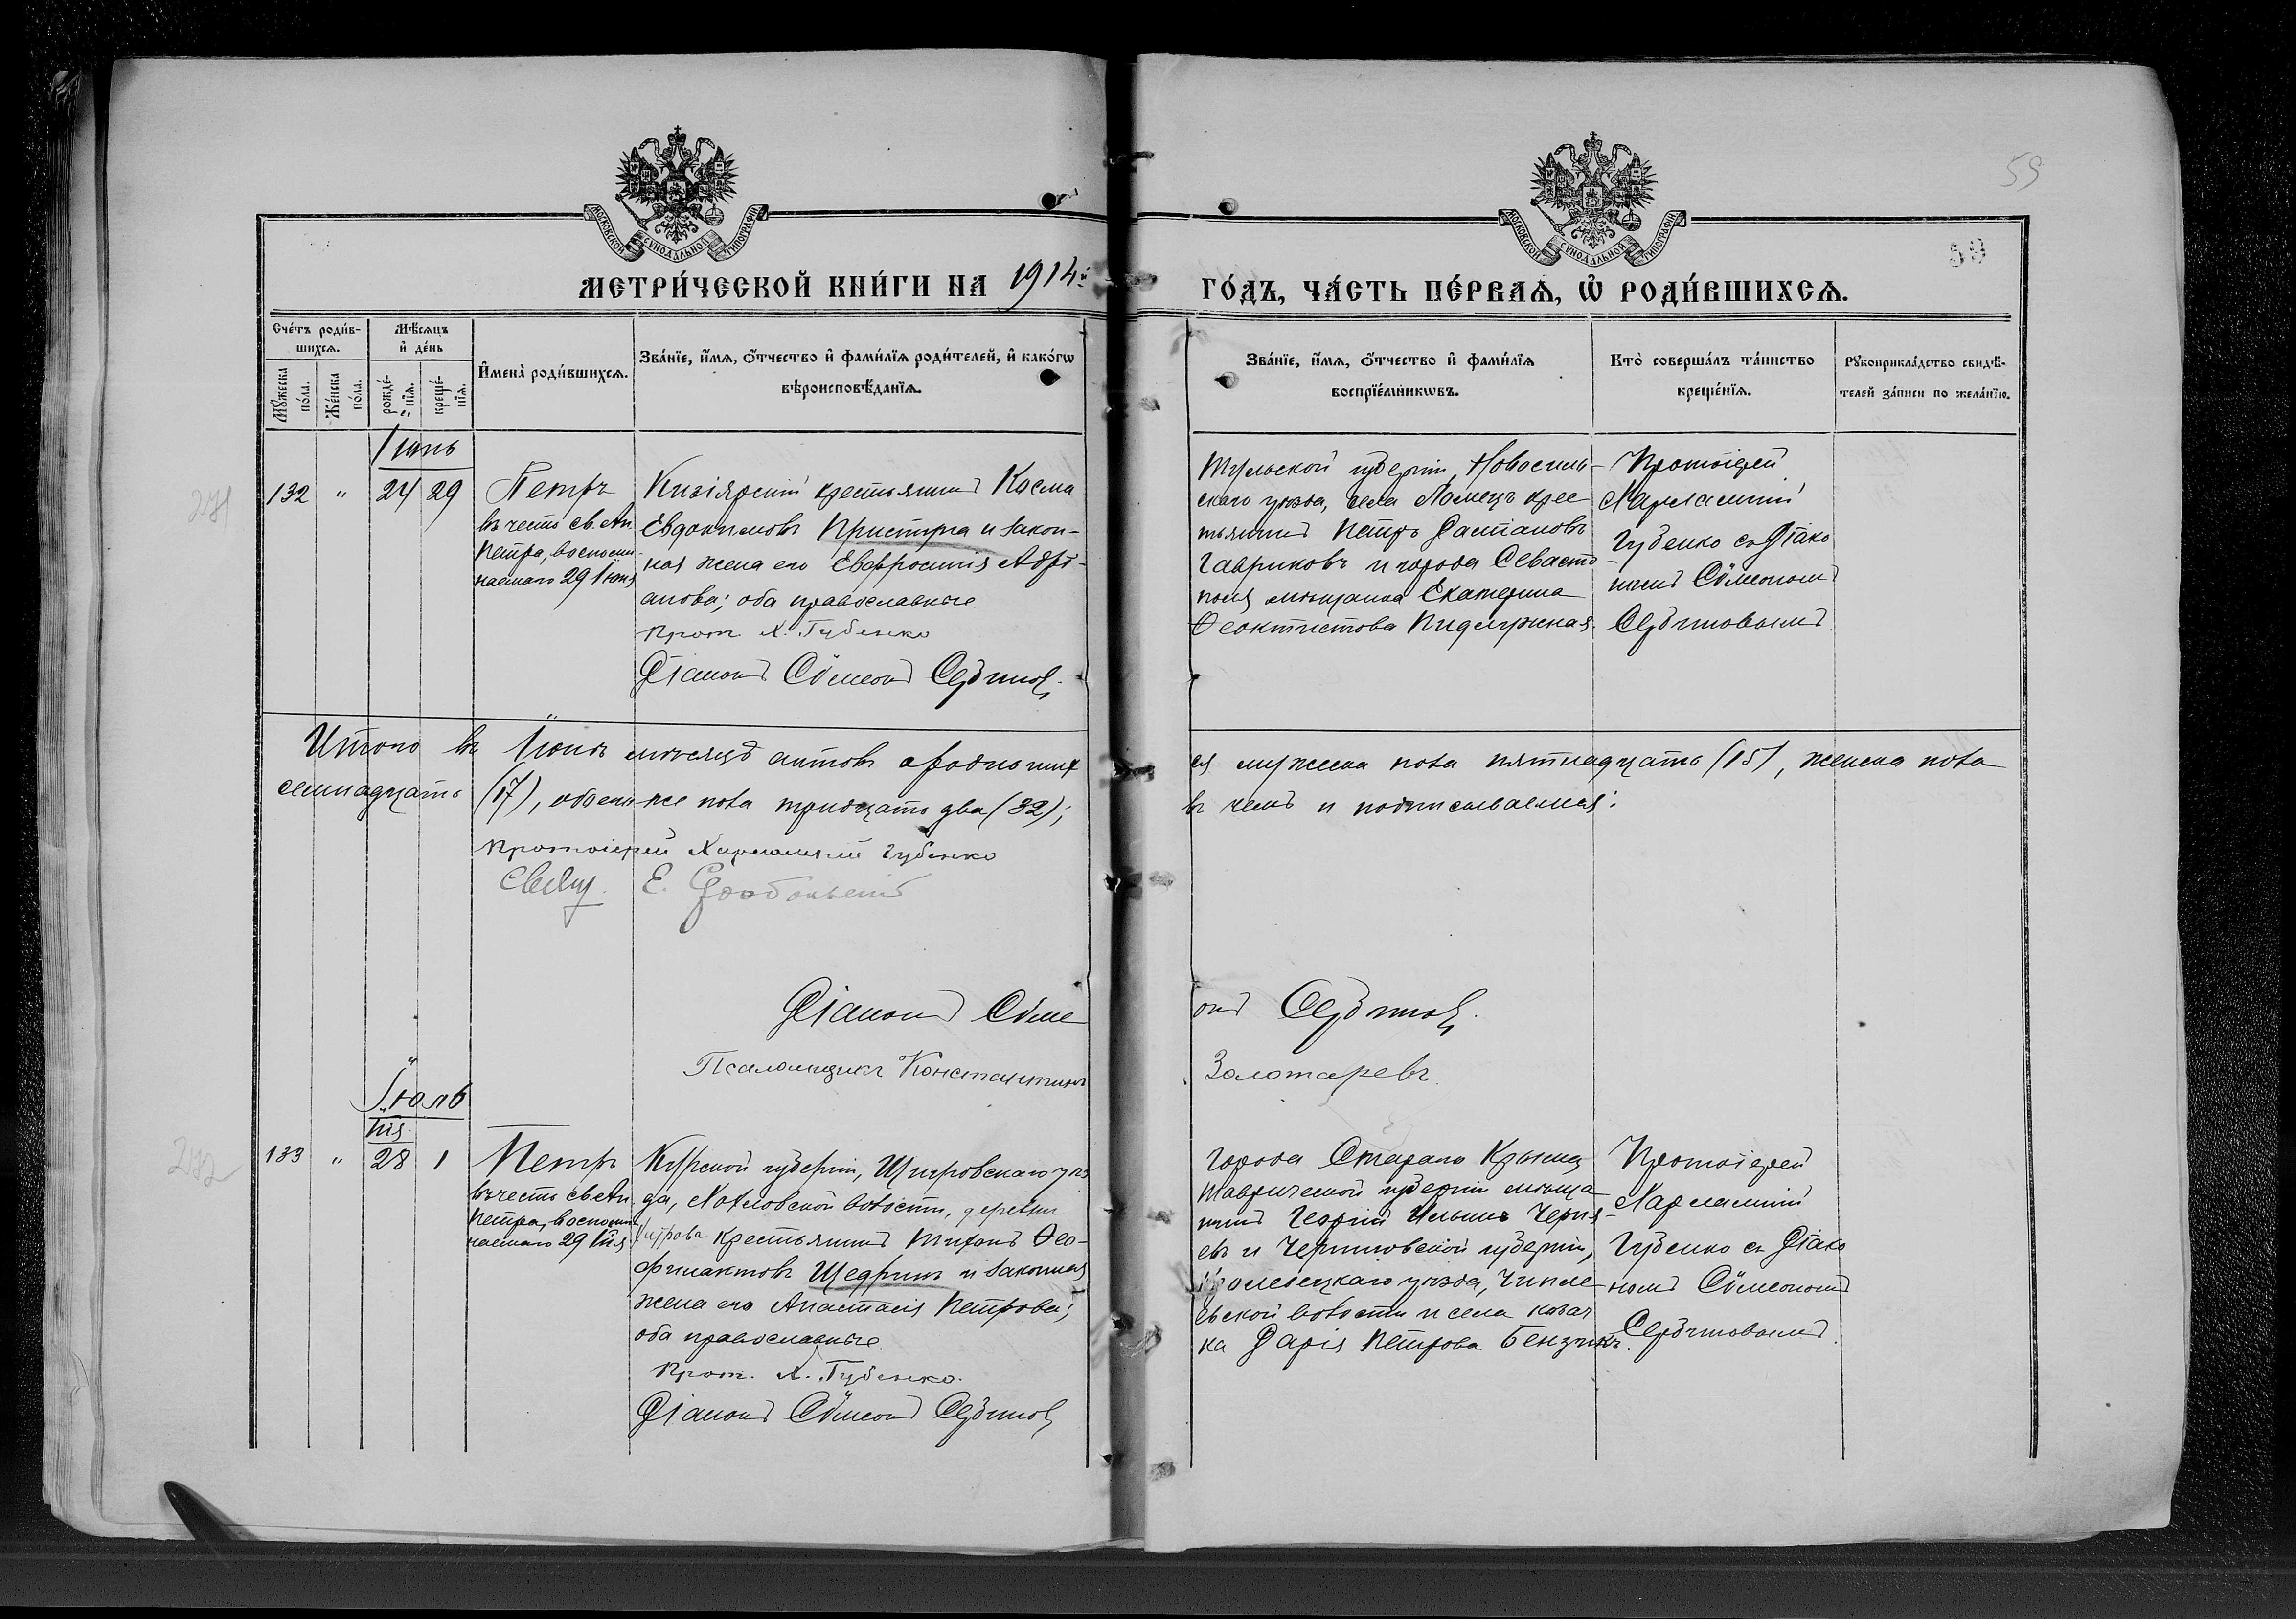 59
59
МОСКОВСКОЙ СѴНОДАЛЬНОЙ ТИПОГРАФІИ
МОСКОВСКОЙ СѴНОДАЛЬНОЙ ТИПОГРАФІИ
МЕТРИ́ЧЕСКОЙ КНИ́ГИ НА 1914й
ГО́ДЪ, ЧА́СТЬ ПЕ́РВАѦ, Ѡ РОДИ́ВШИХСѦ.
Сче́тъ роди́в-
шихсѧ.
Мꙋжеска по́ла.
Же́нска по́ла.
Мѣ́сѧцъ и де́нь
рожде́-нїѧ.
креще́-нїѧ.
Имена̀ роди́вшихсѧ.
Зва́нїе, и́мѧ, ѻ́тчество и фами́лїѧ роди́телей, и како́гѡ
вѣроисповѣ́данїѧ.
Зва́нїе, и́мѧ, ѻ́тчество и фами́лїѧ
воспрїе́мникѡвъ.
Кто̀ соверша́лъ та́инство
креще́нїѧ.
Рꙋкоприкла́дство свидѣ́-
телей за́писи по жела́нїю.
Іюнь
271
132 " 24 29
Петръ
въ честь св. Ап.
Петра, воспоми-
наемаго 29 Іюня
Кизіярскій крестьянинъ Косма
Евдокимовъ Приступа и закон-
ная жена его Евфросинія Адрі-
анова; оба православные.
Прот. Х. Губенко
Діаконъ Сѵмеонъ Сербиновъ.
Тульской губерніи, Новосиль-
скаго уѣзда, села Ломецъ крес-
тьянинъ Петръ
Гавриковъ и города Севасто-
поля мѣщанка Екатерина
Ѳеоктистова
Протоіерей
Харлампій
Губенко съ Діако
номъ Сѵмеономъ
Сербиновымъ.
Итого въ Іюнѣ мѣсяцѣ актовъ о родивших
ся мужеска пола пятнадцать (15), женска пола
семнадцать (17), обоего-же пола тридцать два (32);
въ чемъ и подписываемся:
Протоіерей Харлампій Губенко
Діаконъ Сѵме
онъ Сербиновъ.
Псаломщикъ Константинъ
Золотаревъ.
Іюль
272
Іюня
133 " 28 1
Петръ
въ честь св. Ап.
Петра, воспоми-
наемаго 29 Іюня
Курской губерніи, Щигровскаго уѣз
да, Хохловской волости, деревни
крестьянинъ Тихонъ Ѳео-
филактовъ Щедринъ и законная
жена его Анастасія Петрова;
оба православные.
Прот. Х. Губенко.
Діаконъ Сѵмеонъ Сербиновъ
города Стараго Крыма
Таврической губерніи мѣща-
нинъ Георгій Ильинъ Черня-
евъ и Черниговской губерніи,
уѣзда,
волости и села козач
ка Дарія Петрова Бензикъ.
Протоіерей
Харлампій
Губенко съ Діако
номъ Сѵмеономъ
Сербиновымъ.